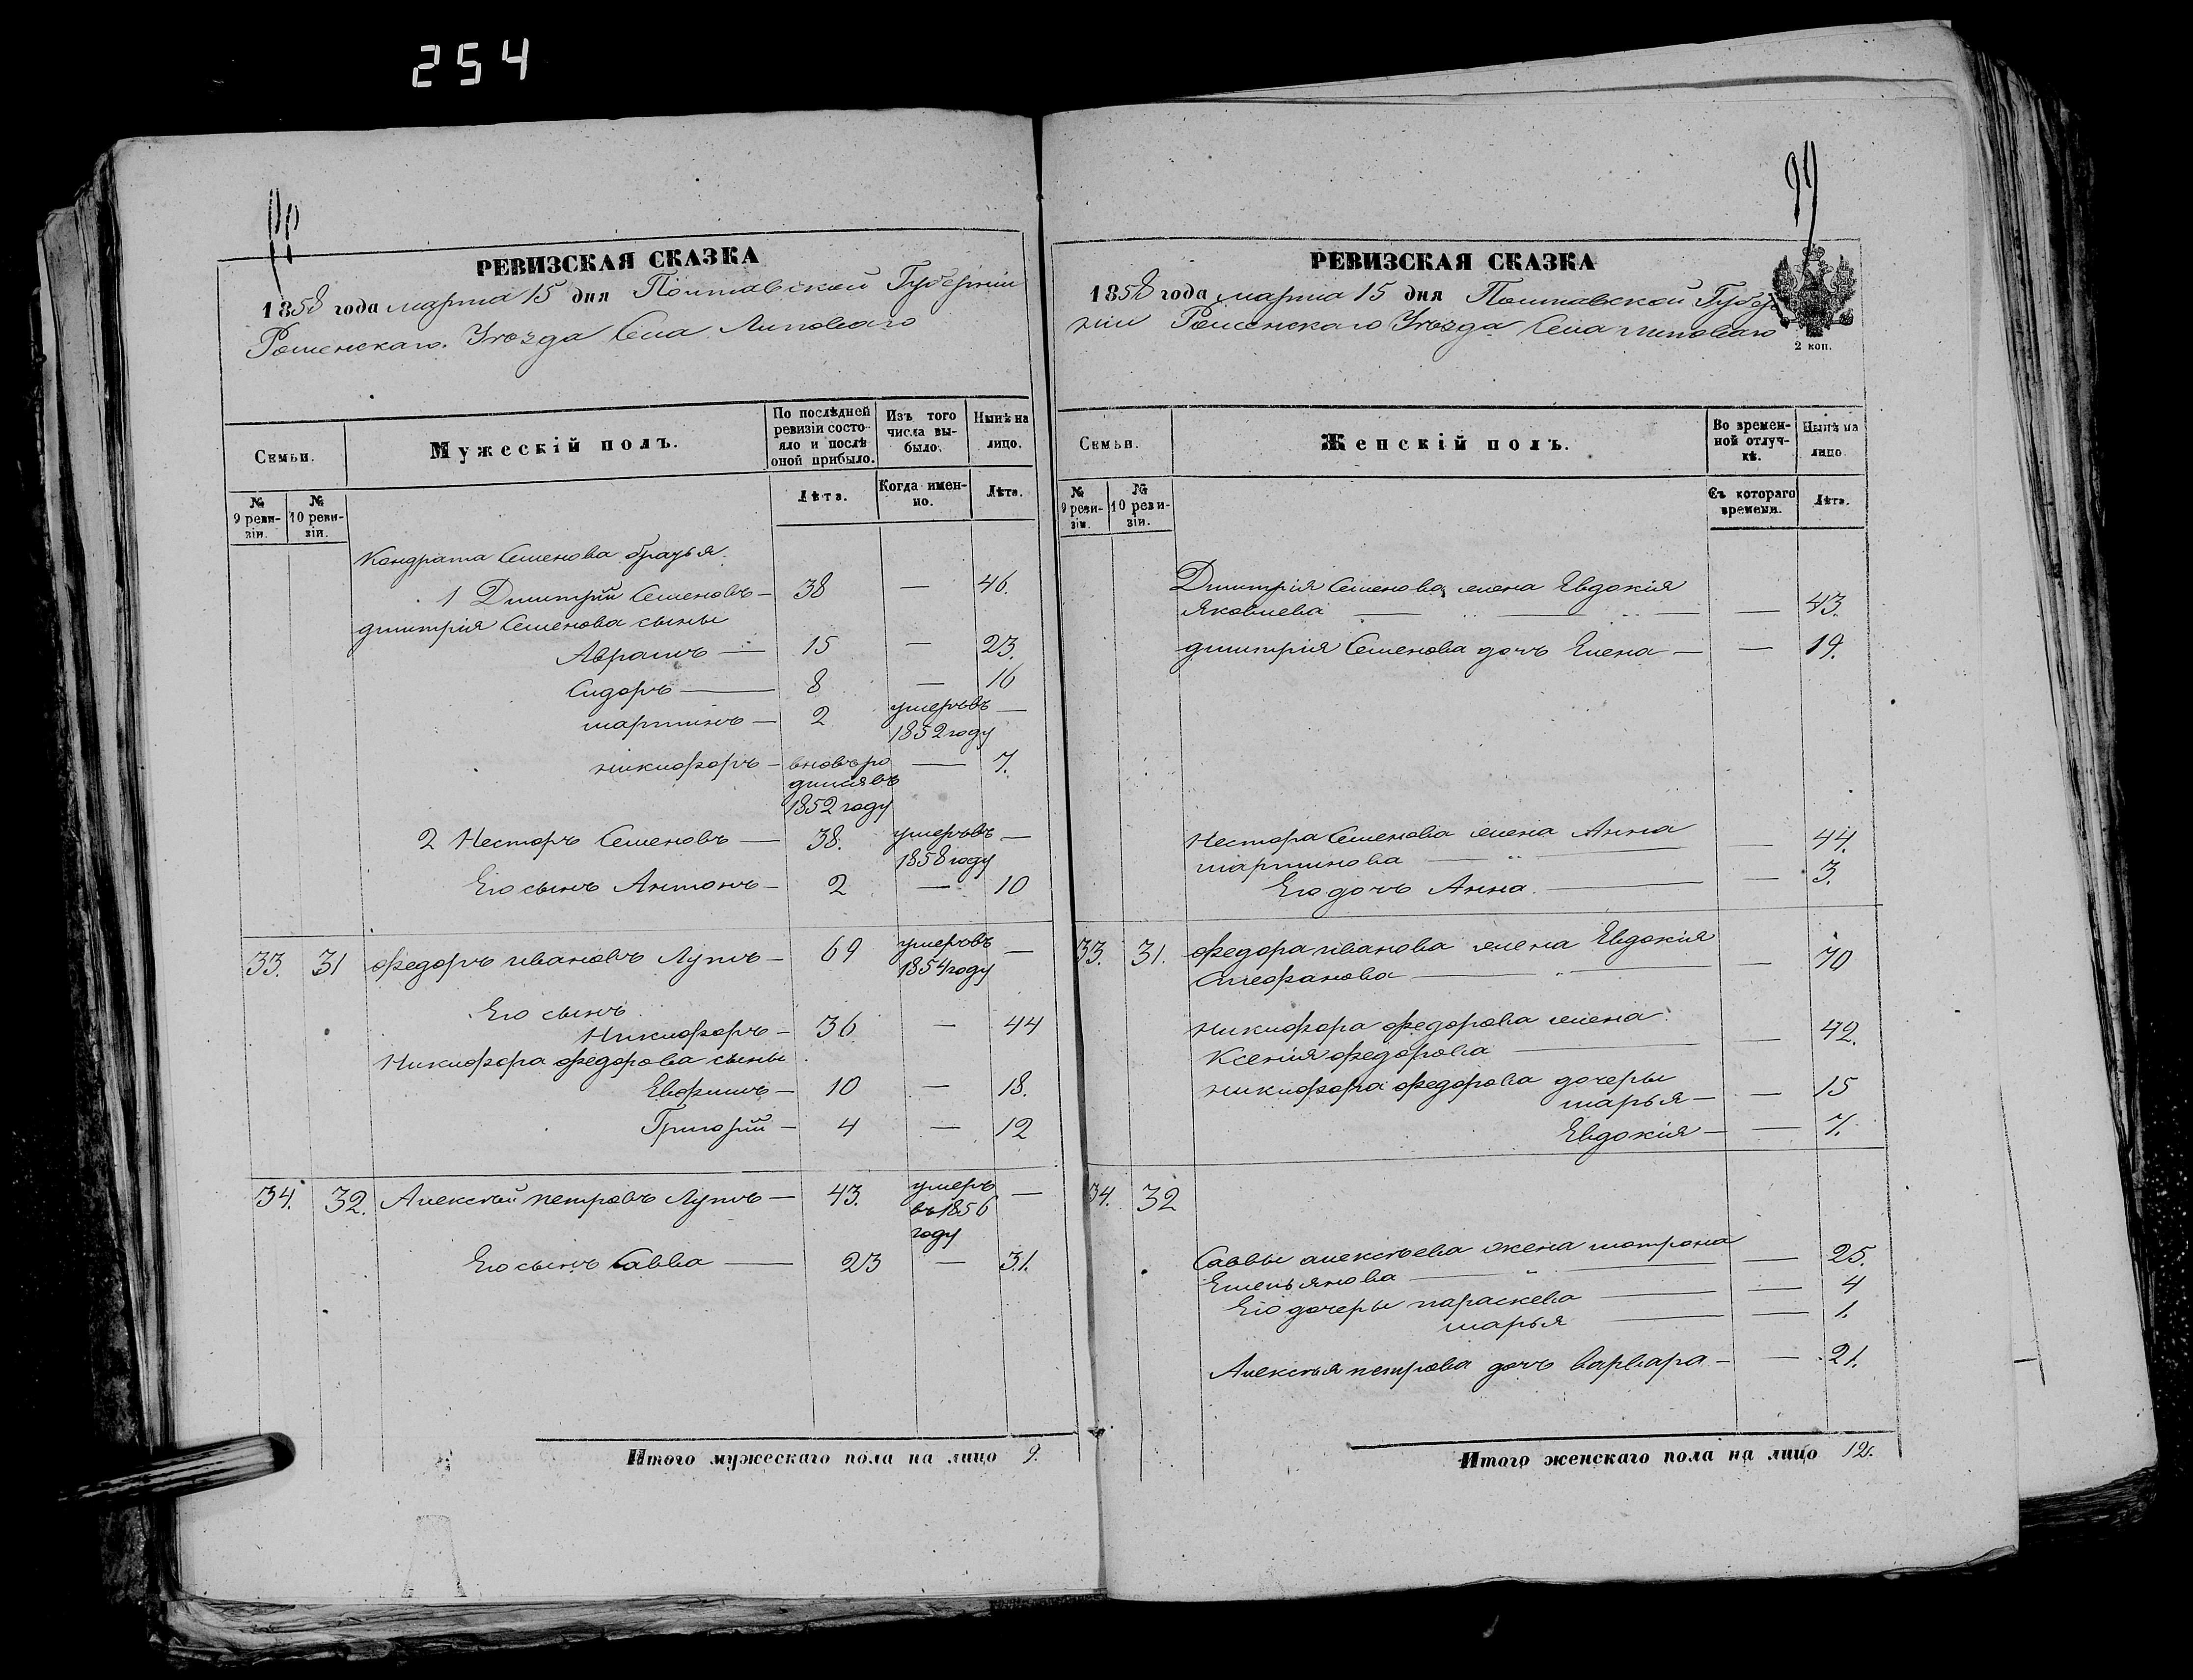 254
РЕВИЗСКАЯ СКАЗКА
1858 года марта 15 дня Полтавской Губерніи
Роменскаго Уѣзда Села Липоваго
Семьи.
Мужескій полъ.
По послѣдней ревизіи состояло и послѣ оной прибыло.
Изъ того числа выбыло.
Нынѣ на лицо.
№ 9 ревизіи.
№ 10 ревизіи.
Лѣта.
Когда именно.
Лѣта.
Кондрата Семенова братья.
1 Дмитрій Семеновъ — 38 — 46.
дмитрія Семенова сыны
Аврамъ — 15 — 23.
Сидоръ — 8 — 16
мартинъ — 2 умеръ въ —
1852 году
никифоръ — вновь ро — 7.
дился въ
1852 году
2 Несторъ Семеновъ — 38. умеръ въ —
1858 году
Его сынъ Антонъ — 2 — 10
33. 31 Федоръ ивановъ Лупъ — 69 умеръ въ —
1854 году
Его сынъ
Никифоръ — 36 — 44
Никифора федорова сыны
Евфимъ — 10 — 18.
Григорій — 4 — 12
34. 32. Алексѣй петровъ Лупъ — 43. умеръ —
въ 1856
году
Его сынъ Савва — 23 — 31.
Итого мужескаго пола на лицо 9.
99
РЕВИЗСКАЯ СКАЗКА
1858 года марта 15 дня Полтавской Губер
ніи Роменскаго Уѣзда Села липоваго
2 коп.
Семьи.
Женскій полъ.
Во временной отлучкѣ.
Нынѣ на лицо.
№ 9 ревизіи.
№ 10 ревизіи.
Съ котораго времени.
Лѣта.
Дмитрія Семенова жена Евдокія
Яковлева — — 43.
дмитрія Семенова дочь Елена — — 19.
Нестора Семенова жена Анна
мартинова — — 44.
Его дочь Анна. — — 3.
33. 31. Федора иванова жена Евдокія
Стефанова — — 70
никифора федорова жена
Ксенія федорова — — 42.
никифора федорова дочеры
марья — — 15
Евдокія — — 7.
34. 32
Саввы алексѣева жена мотрона
Емельянова — — 25.
Его дочеры параскева — — 4
марья — — 1.
Алексѣя петрова дочь варвара — — 21.
Итого женскаго пола на лицо 12.